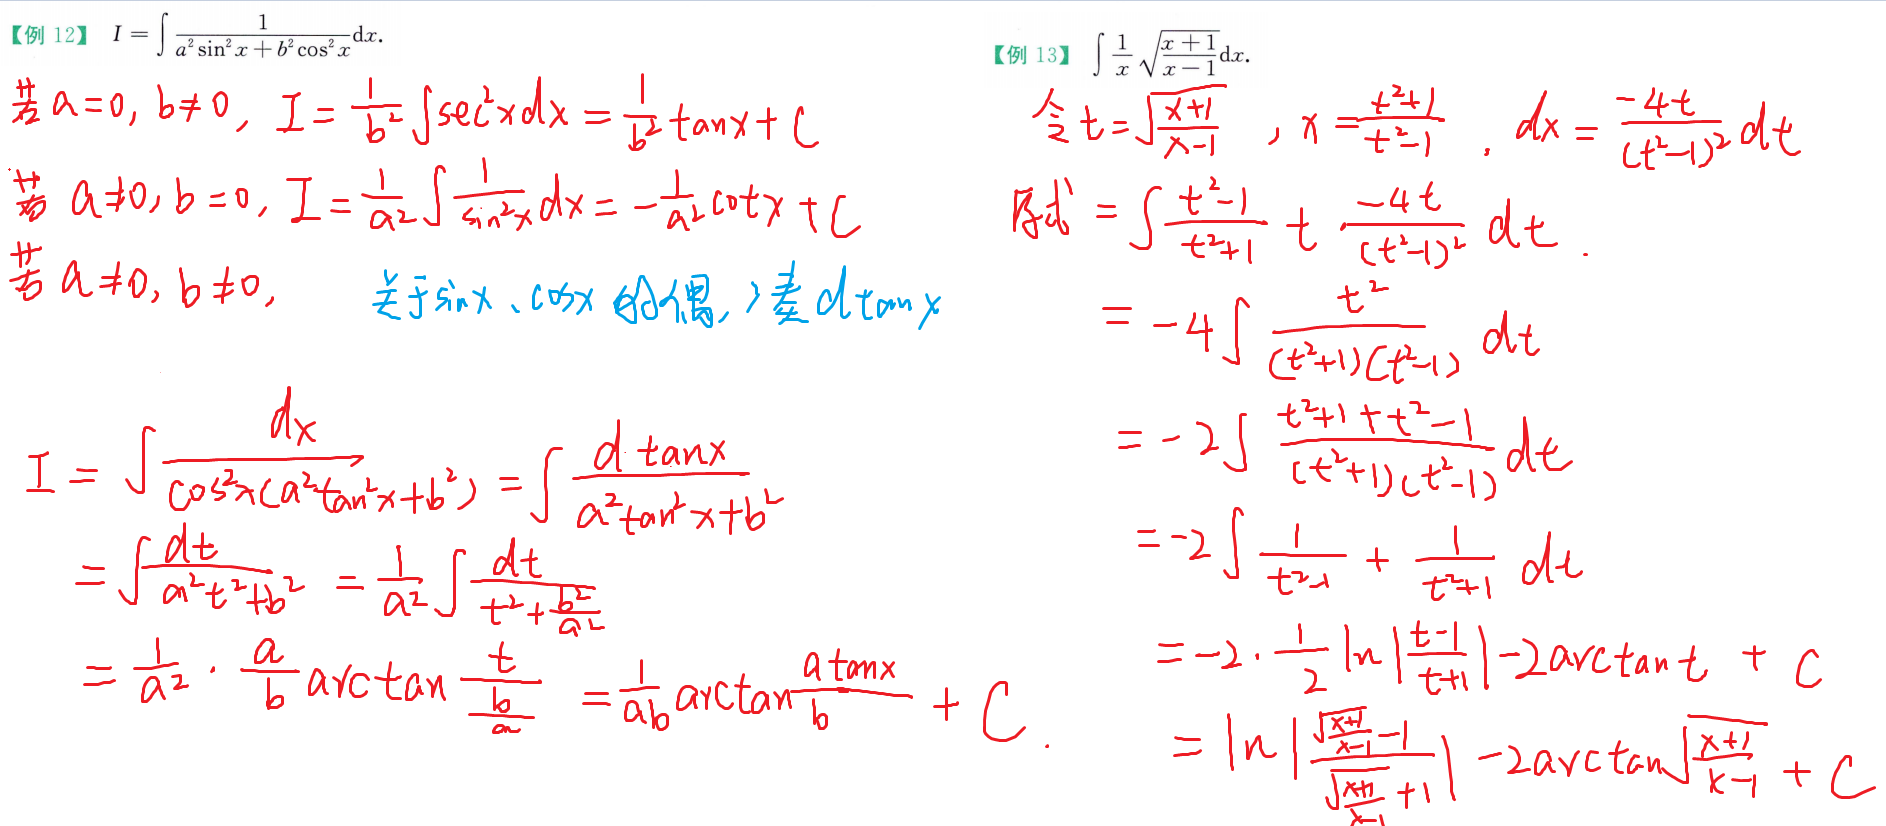 【例 12】 I = ∫ 1/(a² sin² x + b² cos² x) dx.
若 a=0, b≠0, I = 1/b² ∫ sec²x dx = 1/b² tanx + C
若 a≠0, b=0, I = 1/a² ∫ 1/sin²x dx = -1/a² cotx + C
若 a≠0, b≠0,
关于sinx、cosx的偶,凑dtanx
I = ∫ dx/(cos²x(a²tan²x+b²)) = ∫ d tanx/(a²tan²x+b²)
= ∫ dt/(a²t²+b²) = 1/a² ∫ dt/(t²+b²/a²)
= 1/a² · a/b arctan t/(b/a) = 1/ab arctan (a tanx)/b + C.
【例 13】 ∫ 1/x √((x+1)/(x-1)) dx.
令 t=√((x+1)/(x-1)), x=(t²+1)/(t²-1), dx = -4t/(t²-1)² dt
原式 = ∫ (t²-1)/(t²+1) t · -4t/(t²-1)² dt.
= -4∫ t²/((t²+1)(t²-1)) dt
= -2∫ (t²+1+t²-1)/((t²+1)(t²-1)) dt
= -2∫ 1/(t²-1) + 1/(t²+1) dt
= -2·1/2 ln|(t-1)/(t+1)| -2arctant + C
= ln|(√((x+1)/(x-1))-1)/(√((x+1)/(x-1))+1)| -2arctan√((x+1)/(x-1)) + C